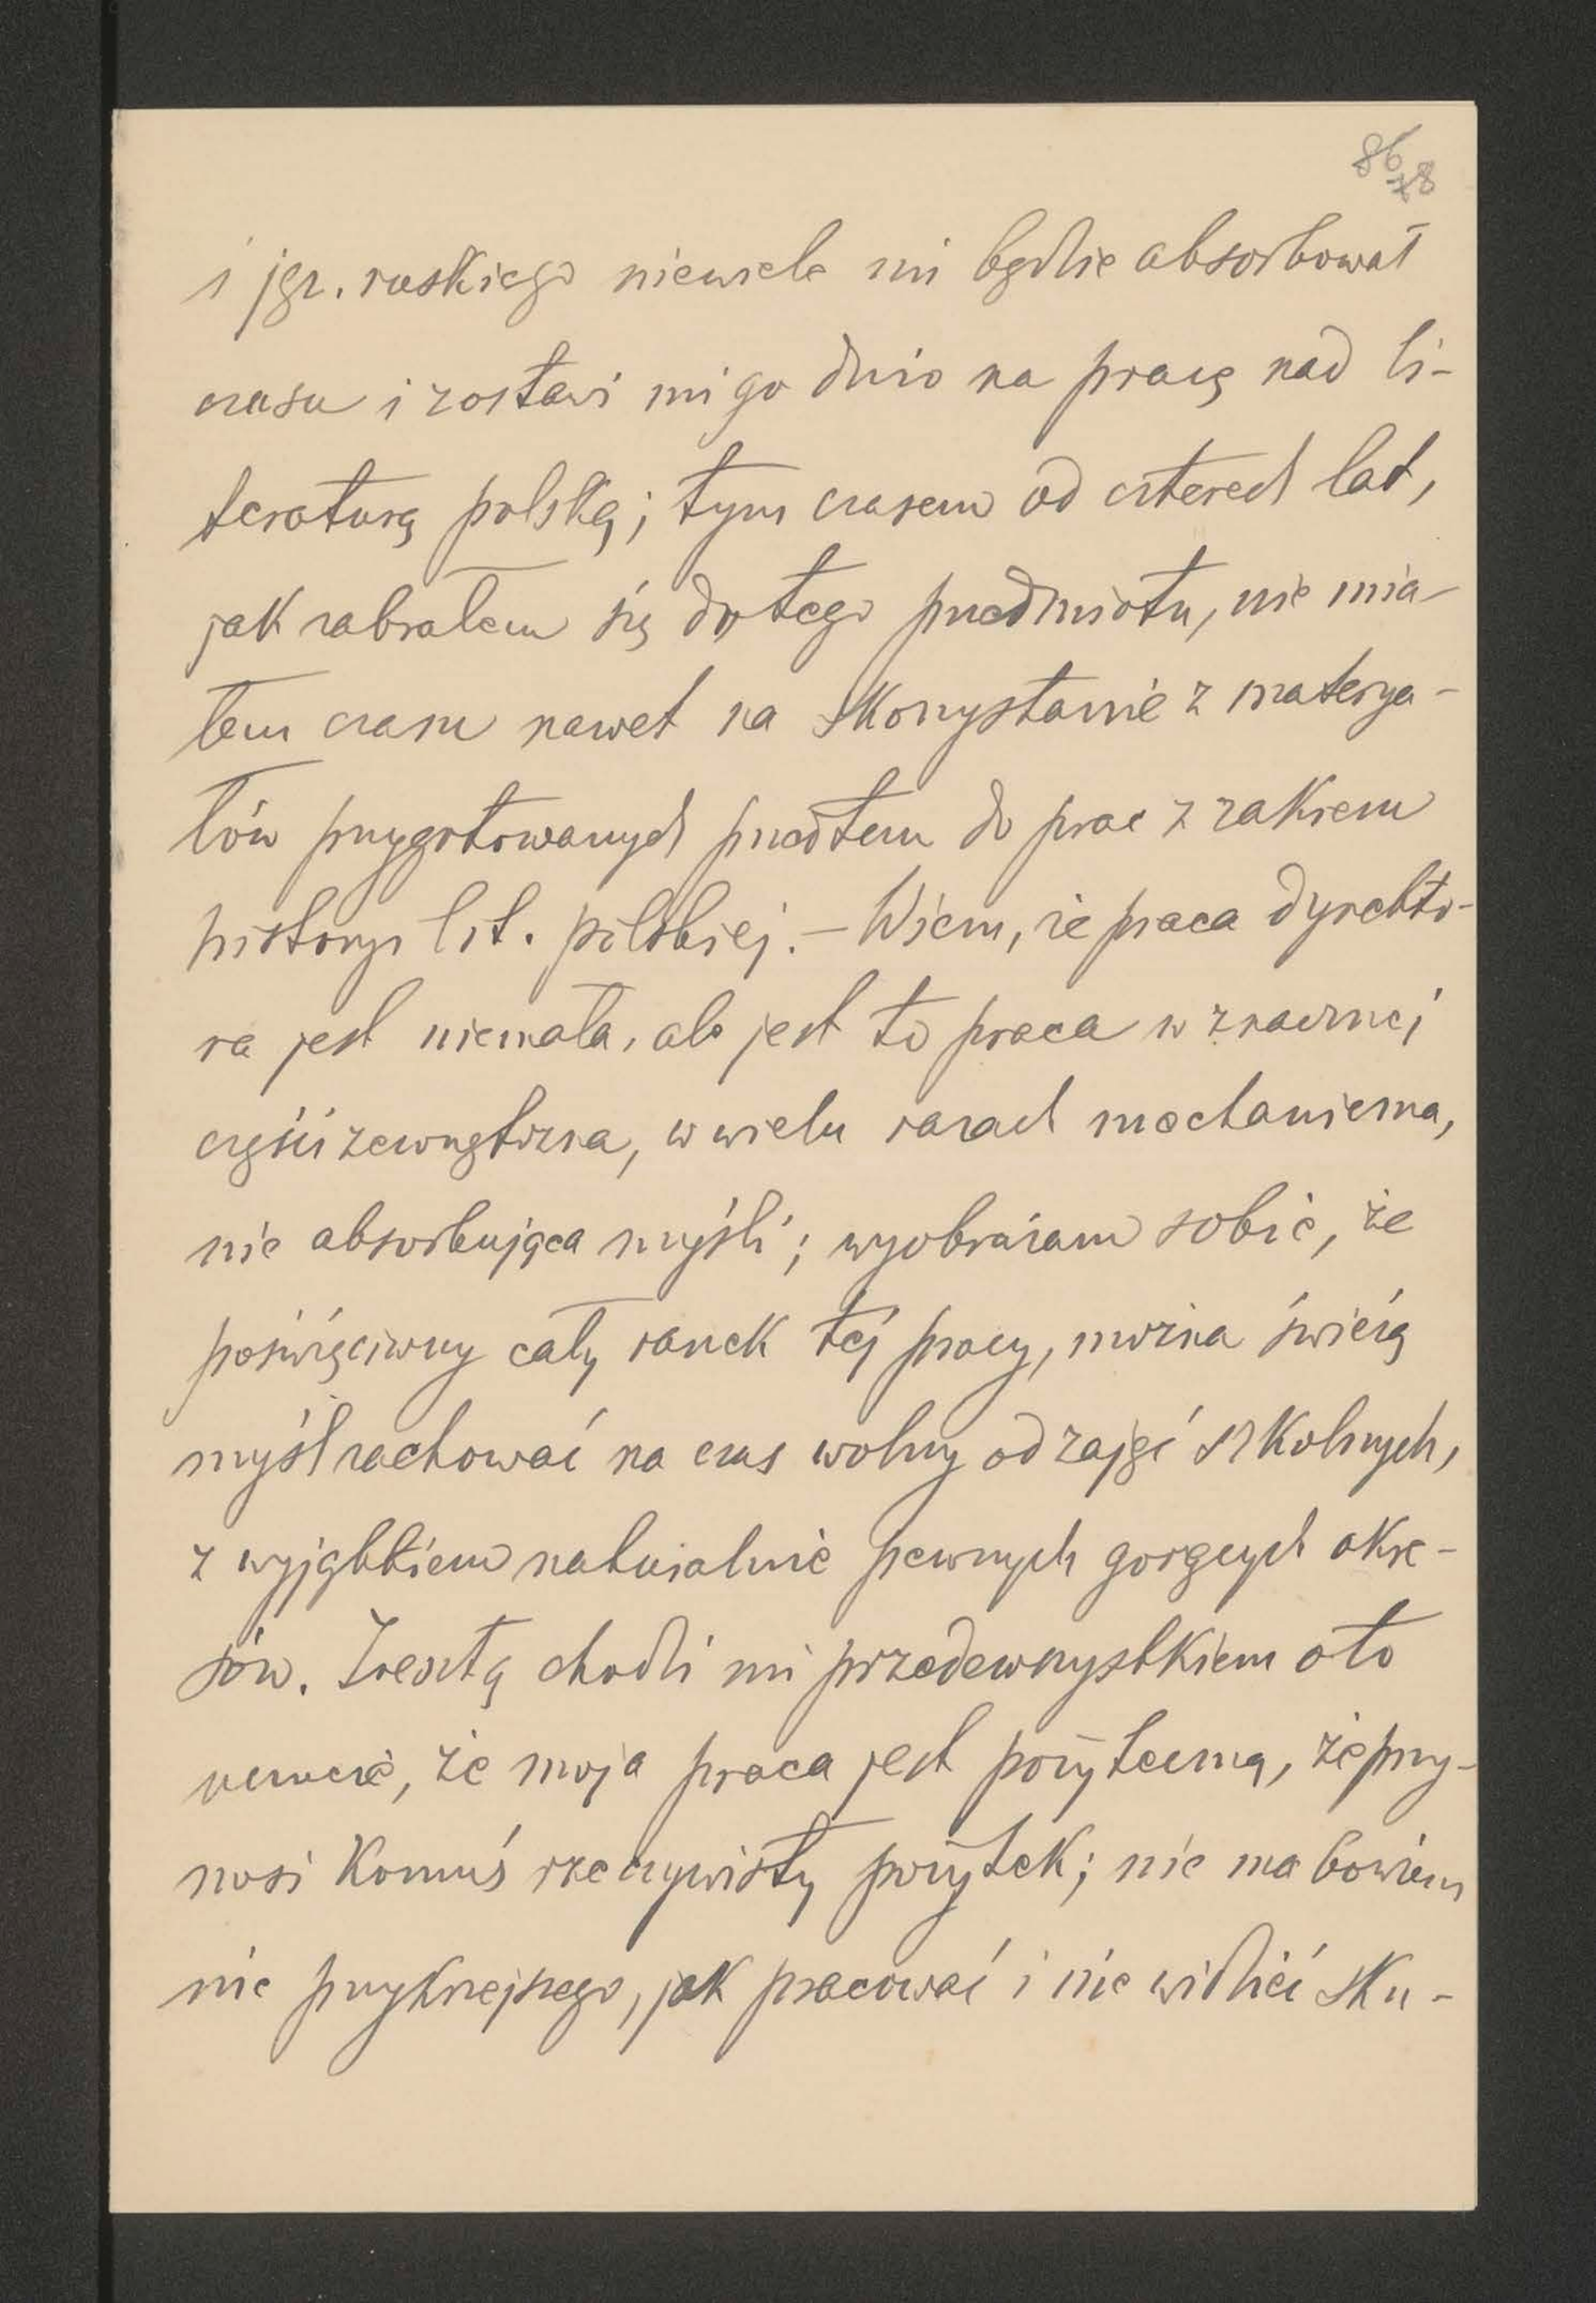 86
78
i jęz. ruskiego niewiele mi będzie absorbował
czasu i zostawi mi go dużo na pracę nad li-
teraturą polską; tym czasem od czterech lat,
jak zabrałem się do tego przedmiotu, nie mia-
łem czasu nawet na skorzystanie z materya-
łów przygotowanych przedtem do prac z zakresu
historyi lit. polskiej. – Wiem, że praca dyrekto-
ra jest niemała, ale jest to praca w znacznej
części zewnętrzna, w wielu razach mechaniczna,
nie absorbująca myśli; wyobrażam sobie, że
poświęciwszy cały ranek tej pracy, można świeżą
myśl zachować na czas wolny od zajęć szkolnych,
z wyjątkiem naturalnie pewnych gorących okre-
sów. Zresztą chodzi mi przedewszystkiem o to
uczucie, że moja praca jest pożyteczną, że przy-
nosi komuś rzeczywisty pożytek; nie ma bowiem
nic przykrzejszego, jak pracować i nie widzieć sku-